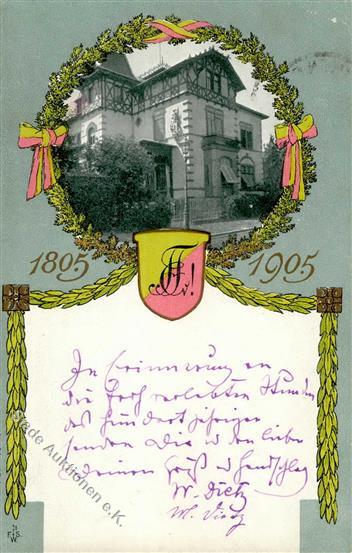 1805 1905
In Erinnerung an
die froh verlebten Stunden
des hundertjährigen
senden Dir u den lieben
Deinen Gruß u Handschlag
W. Dietz
Stade Auktionen e.K.